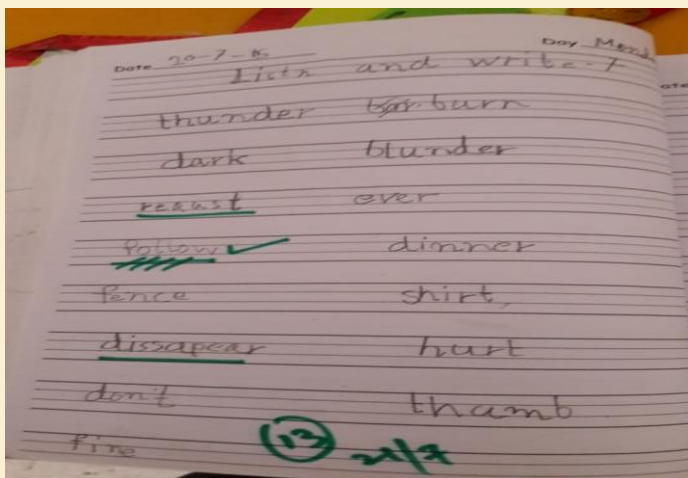 Date 20-7-15 Day Mond
Listn and write-7
thunder burn
dark blunder
requst ever
follow dinner
fence shirt,
dissapear hurt
don't thamb
fine 13